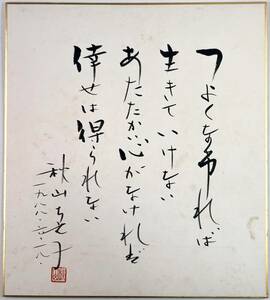 つよくなければ
生きていけない
あたたかい心がなければ
倖せは得られない
秋山ちえ子
一九八八・六・九